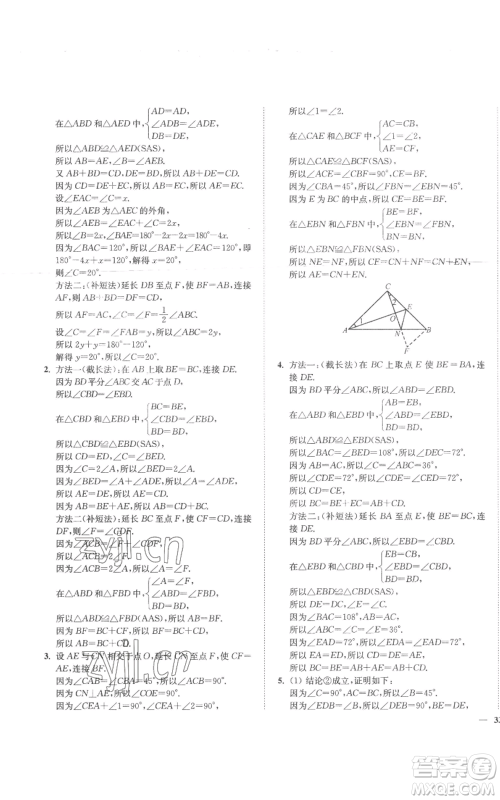 AD=AD,
在△ABD 和△AED 中,∠ADB=∠ADE,
DB=DE,
所以△ABD≌△AED(SAS),
所以 AB=AE,∠B=∠AED.
又 AB+BD=CD,所以 AE+BD=CD.
因为 CD=DE+EC,所以 EC=AE.
设∠EAC=∠C=x.
因为∠AEB 为△AEC 的外角,
所以∠AEB=∠C+∠EAC=2x.
所以∠B=2x,∠BAE=180°-2x-2x=180°-4x.
因为∠BAC=120°,所以∠BAE+∠EAC=120°,即
180°-4x+x=120°,解得 x=20°,
则∠C=20°.
方法二:(补短法)延长 DB 至点 F,使 BF=AB,连接
AF,所以 AB+BD=BF+BD=DF=CD.
所以 AF=AC,∠F=∠C=1/2∠ABC.
设∠C=∠F=y,则∠ABC=2y.
因为∠BAC=120°,
所以 2y+y+120°=180°.
解得 y=20°,所以∠C=20°.
2. 方法一(截长法):在 BC 上取点 E,使 BE=BA,连
接 DE.因为 BD 平分∠ABC,AC 于点 D,
所以∠CBD=∠EBD.
BC=BE,
在△CBD 和△EBD 中,∠CBD=∠EBD,
BD=BD,
所以△CBD≌△EBD(SAS).
所以∠BED=∠C,CD=DE.
因为∠C=2∠A,所以∠BED=2∠A.
因为∠BED=∠A+∠ADE,所以∠A=∠ADE.
所以 AE=DE.所以 AE=CD.
因为 AB=BE+AE,所以 AB=CD+BC.
方法二(补短法):延长 BC 至点 F,使 CF=CD,连接
DF,则∠F=∠CDF.
因为∠ACB=∠F+∠CDF,所以∠ACB=2∠F.
因为∠ACB=2∠A,所以∠A=∠F.
∠A=∠F,
在△ABD 和△FBD 中,∠ABD=∠FBD,
BD=BD,
所以△ABD≌△FBD(AAS),
所以 AB=BF,
所以 AB=BC+CD.
3. 设 AE 与 CN 相交于点 O,延长 CB 至点 F,使 CF=
AE,连接 BF.
因为∠CAB=∠CBA=45°,所以∠ACB=90°.
因为 CN⊥AE,所以∠COE=90°.
因为∠CEA+∠1=90°,∠CEA+∠2=90°,
所以∠1=∠2.
AC=CB,
在△CAE 和△BCF 中,∠1=∠2,
AE=CF,
所以△CAE≌△BCF(SAS).
因为∠CBA=45°,所以∠FBN=∠CBA=45°.
因为 E 为 BC 的中点,所以 CE=BE=BF.
BE=BF,
在△EBN 和△FBN 中,∠EBN=∠FBN,
BN=BN,
所以△EBN≌△FBN(SAS),
所以 NE=NF,所以 CF=CN+NF=CN+NE.
所以 AE=CN+EN.
C
2
E
O
1
A
N
B
F
4. 方法一:(截长法)在 BC 上取点 E 使 BE=BA,连
接 DE.
因为 BD 平分∠ABC,所以∠ABD=∠EBD.
BE=BA,
在△ABD 和△EBD 中,∠ABD=∠EBD,
BD=BD,
所以△ABD≌△EBD(SAS).
所以∠BED=∠A=108°,∠CED=72°.
因为 AB=AC,所以∠C=∠ABC=36°,
所以∠CDE=72°,所以∠CDE=∠CED=72°.
所以 CD=CE,
所以 BC=BE+EC=AB+CD.
方法二:(补短法)延长 BA 至点 E,使 BE=BC,连
接 DE.
因为 BD 平分∠ABC,所以∠EBD=∠CBD.
EB=CB,
在△EBD 和△CBD 中,∠EBD=∠CBD,
BD=BD,
所以△EBD≌△CBD(SAS).
所以 DE=CD,∠E=∠C.
因为∠BAC=108°,AB=AC,
所以∠C=∠ABC=36°.
因为∠EAD=180°-∠BAC=72°,
所以∠EDA=72°,所以∠EAD=∠EDA=72°.
所以 EA=ED,所以 EA=CD,
所以 BC=EB=AB+AE=AB+CD.
5. (1) 结论②成立,证明如下:
因为∠C=90°,AC=BC,所以∠B=45°.
因为∠DEB=90°,所以∠BDE=90°-45°=45°.
zyjl.cn
zyjl.cn
作业精灵